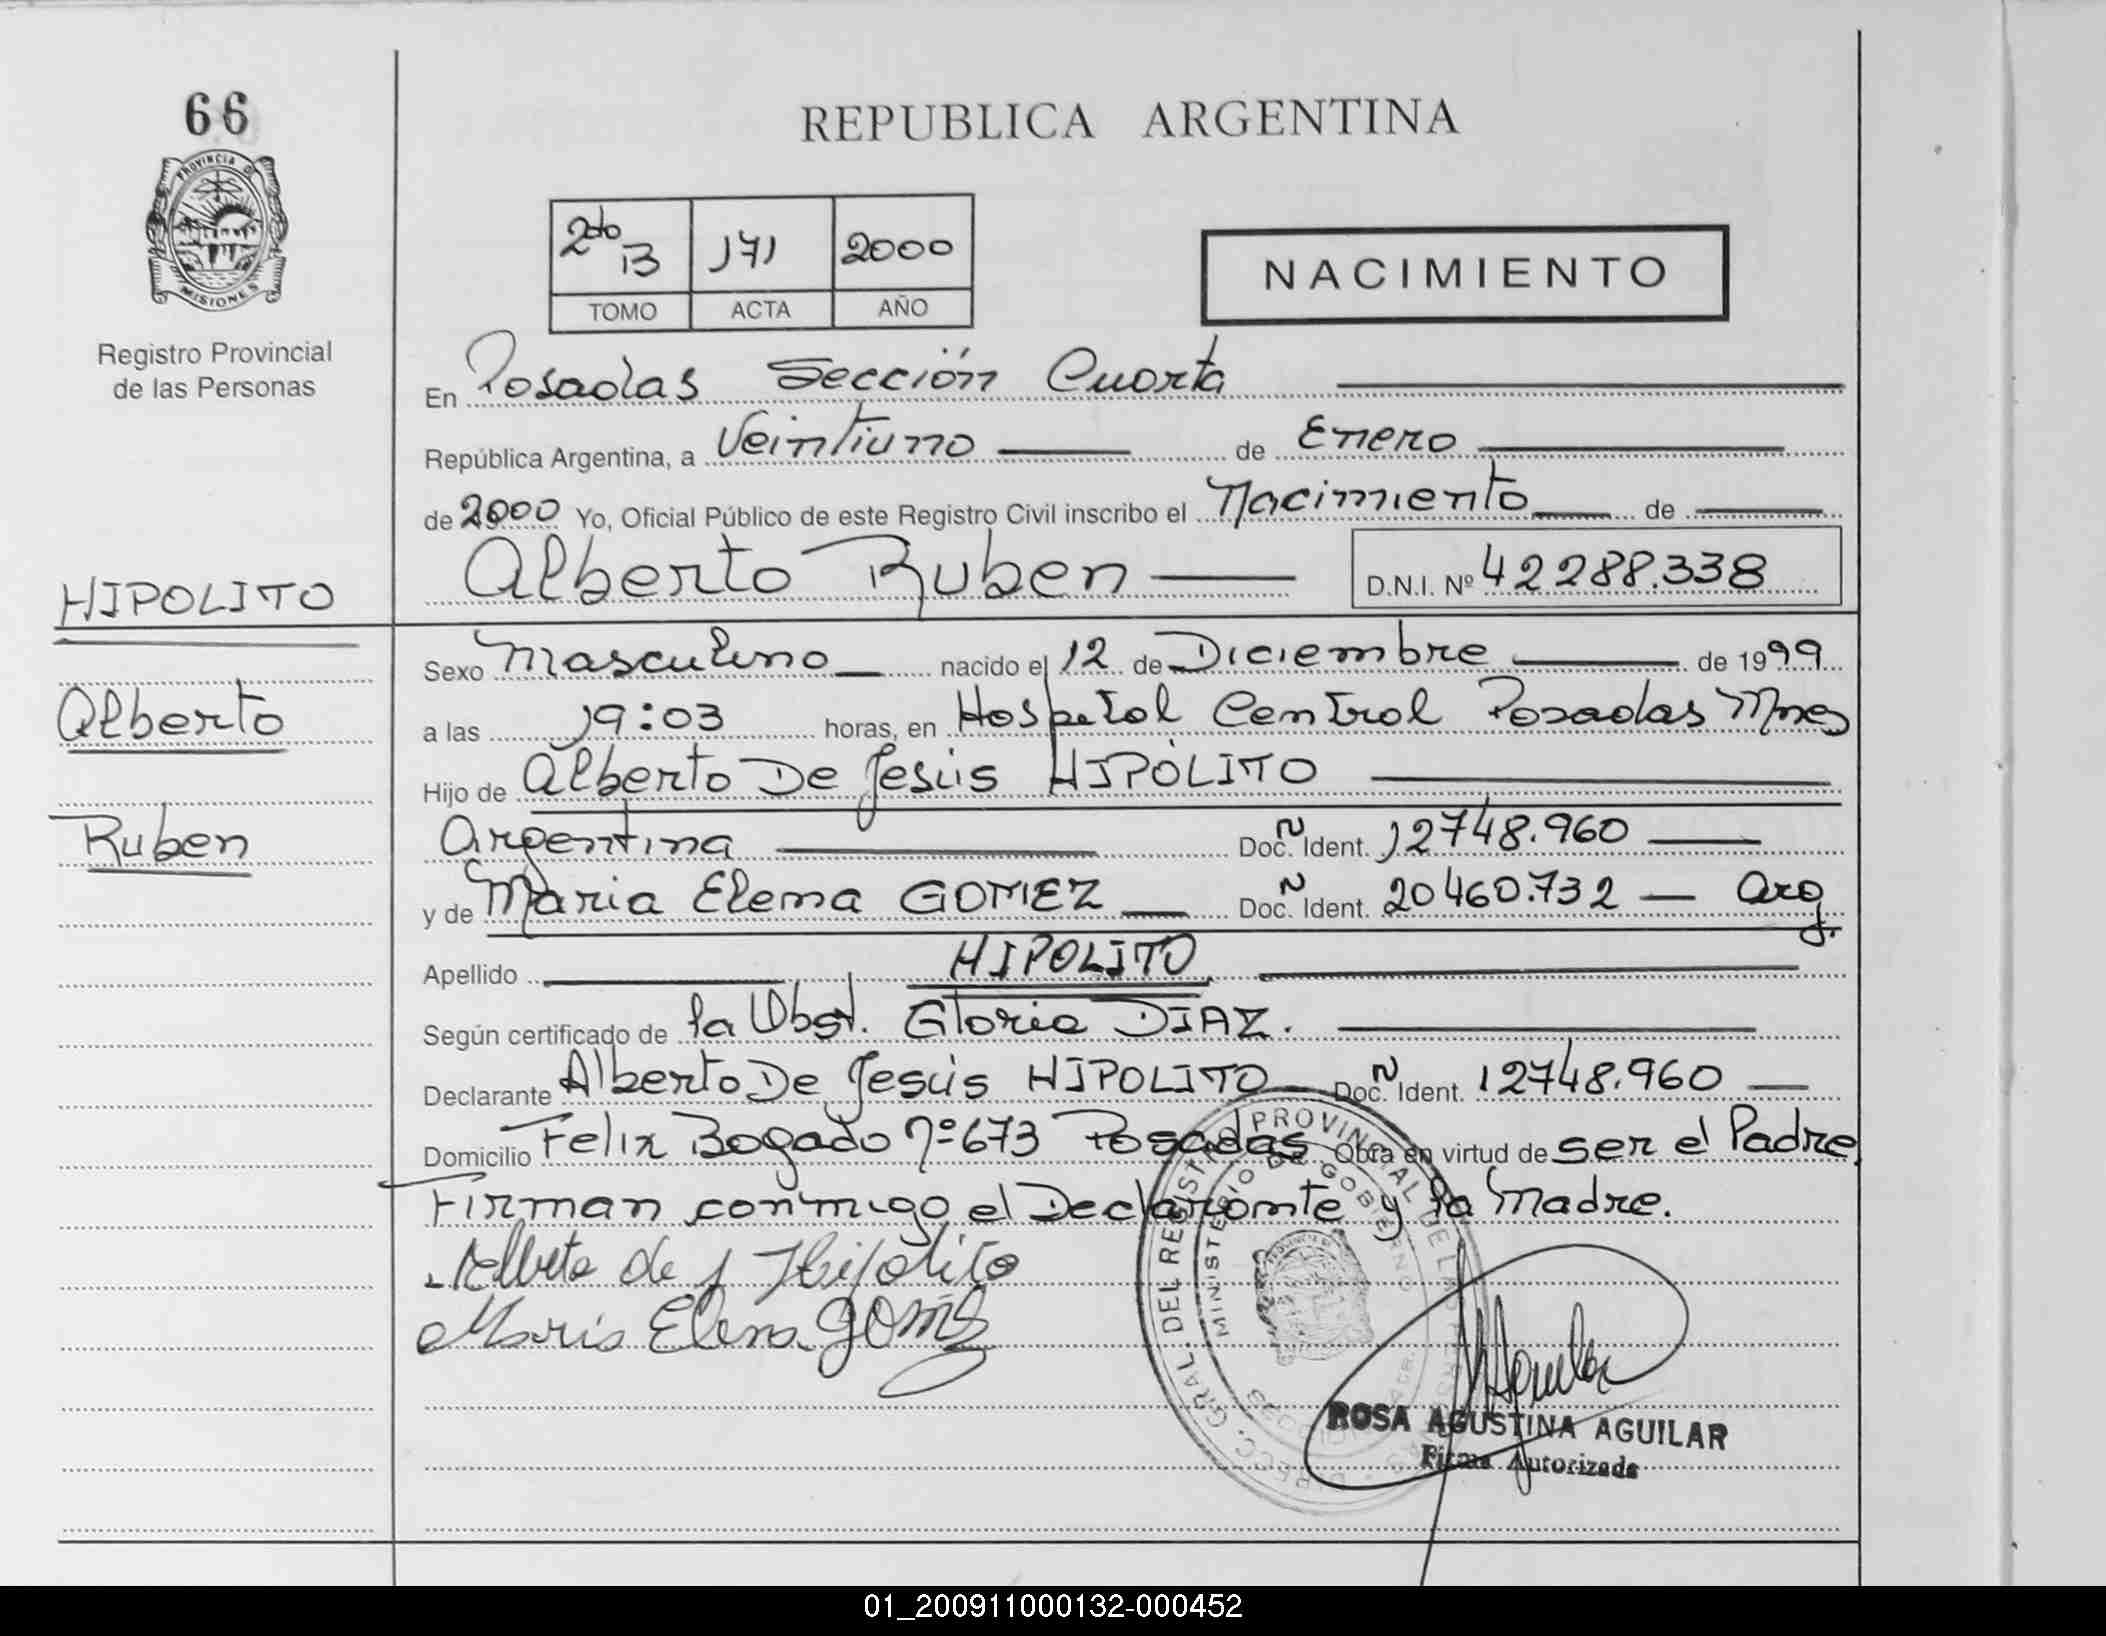 66
PROVINCIA DE
MISIONES
Registro Provincial
de las Personas
HIPOLITO
Alberto
Ruben
REPUBLICA ARGENTINA
2do B 171 2000
TOMO ACTA AÑO
NACIMIENTO
En Posadas Sección Cuarta
República Argentina, a Veintiuno de Enero
de 2000 Yo, Oficial Público de este Registro Civil inscribo el Nacimiento de
Alberto Ruben D.N.I. Nº 42288.338
Sexo Masculino nacido el 12 de Diciembre de 1999
a las 19:03 horas, en Hospital Central Posadas Mnes
Hijo de Alberto De Jesús HIPÓLITO
Argentina Doc. N Ident. 12748.960
y de Maria Elena GOMEZ Doc. N Ident. 20460.732 Arg.
Apellido HIPOLITO
Según certificado de la Obst. Gloria DIAZ.
Declarante Alberto De Jesús HIPOLITO Doc. N Ident. 12748.960
Domicilio Felix Bogado nº 673 Posadas Obra en virtud de ser el Padre,
Firman conmigo el Declarante y la Madre.
Alberto de J Hipolito
Maria Elena Gomez
DIRECC. GRAL. DEL REGISTRO PROVINCIAL DE LAS PERSONAS
MINISTERIO DE GOBIERNO
ROSA AGUSTINA AGUILAR
Firma Autorizada
01_200911000132-000452